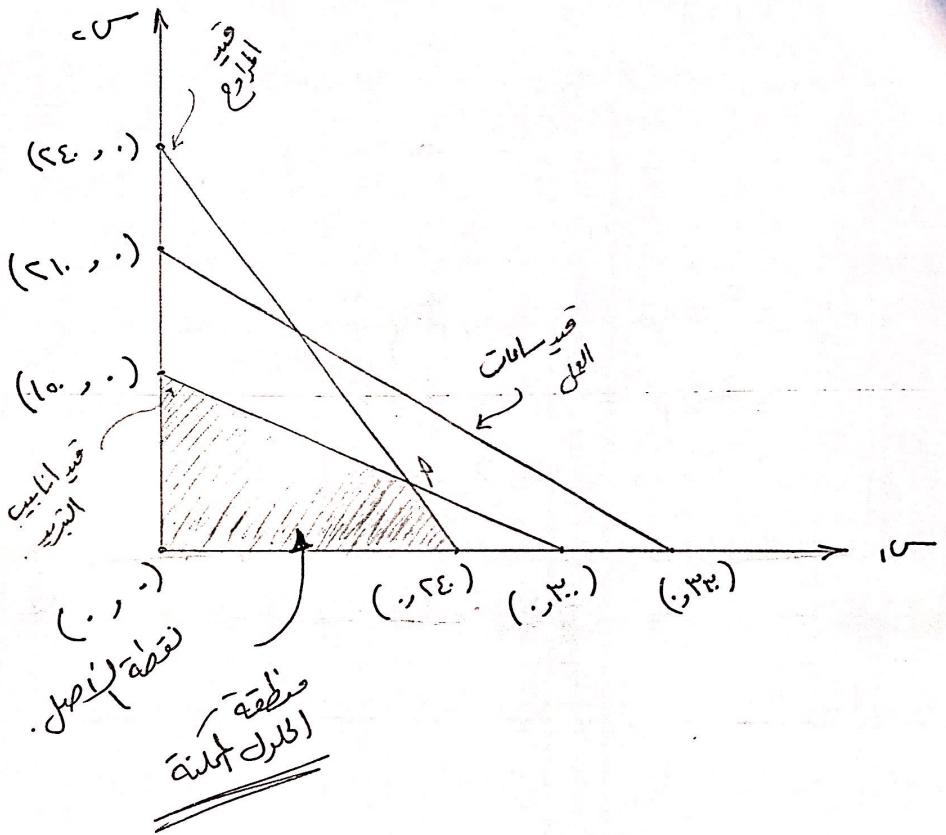 س٢
قيد
المراوح
(٠ , ٢٤٠)
(٠ , ٢١٠)
قيد ساعات
العمل
(٠ , ١٥٠)
قيد انابيب
التبريد
س١
(٠ , ٠)
(٢٤٠ , ٠)
(٣٠٠ , ٠)
(٣٣٠ , ٠)
نقطة الأصل.
منطقة
الحلول الممكنة